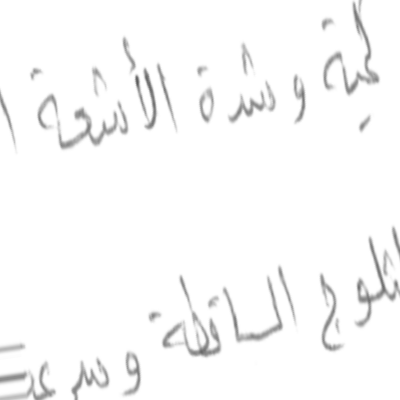 كمية و شدة الأشعة ا
لثلوج الساقطة و سرعة